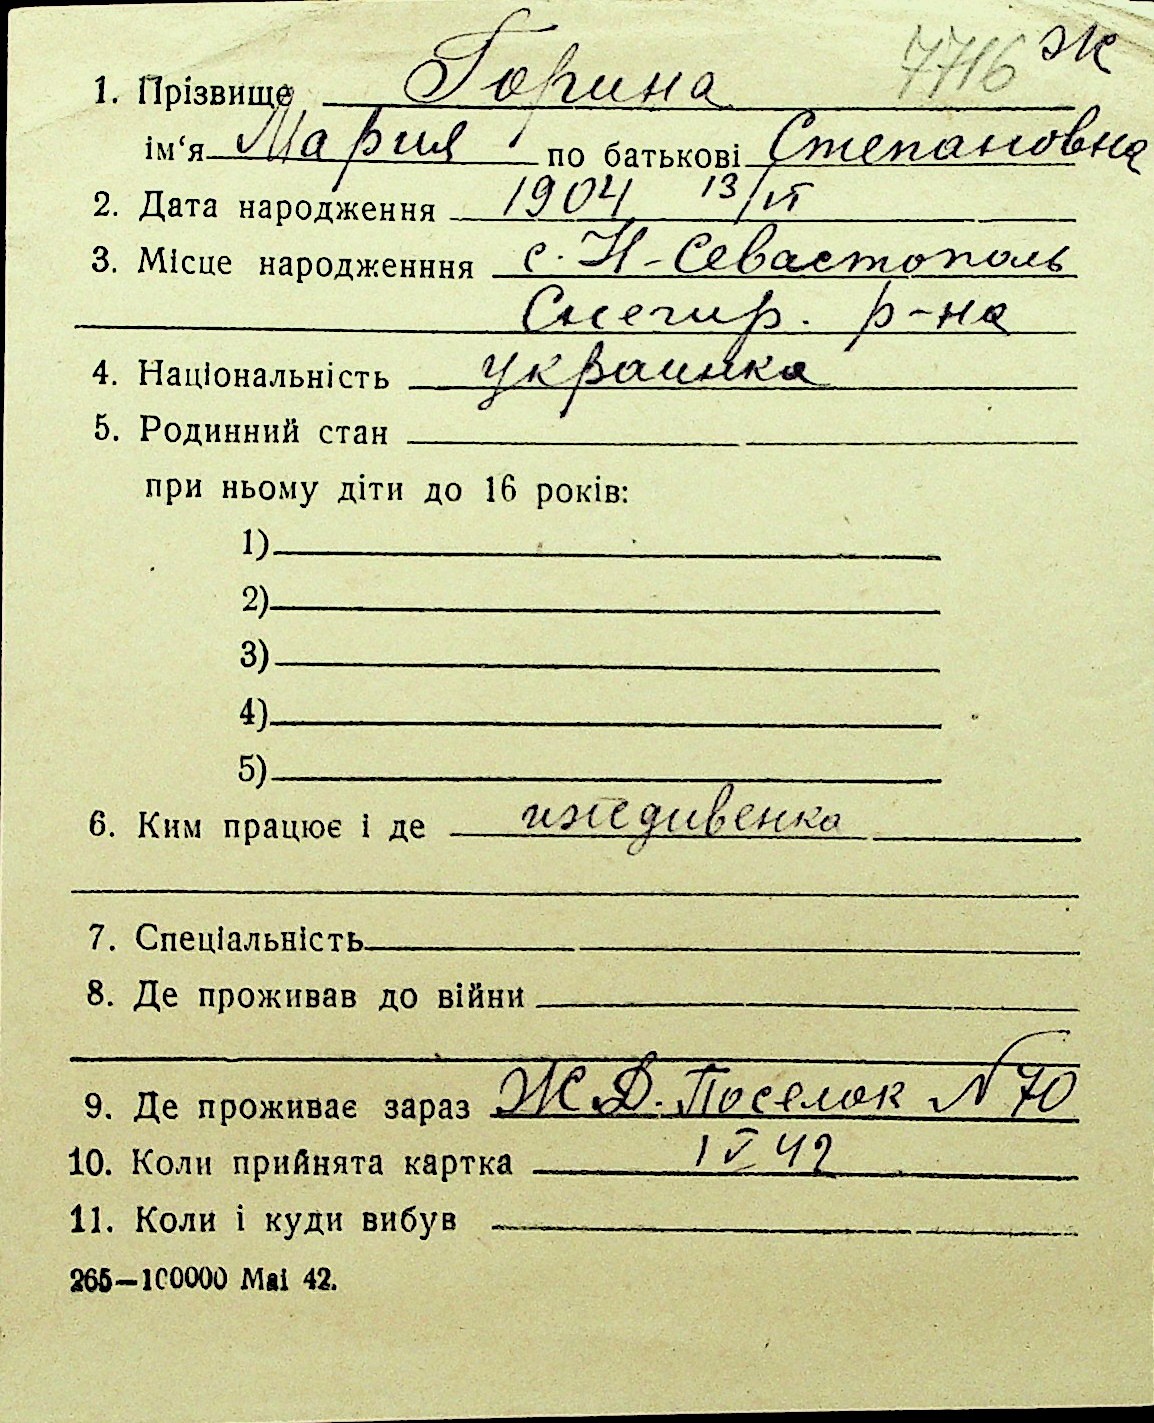 7716 Ж
1. Прізвище Горина
ім‘я Мария по батькові Степановна
2. Дата народження 1904 13/VI
3. Місце народженння с. Н-Севастополь
Снегир. р-на
4. Національність украинка
5. Родинний стан
при ньому діти до 16 років:
1)
2)
3)
4)
5)
6. Ким працює і де иждивенка
7. Спеціальність
8. Де проживав до війни
9. Де проживає зараз Ж.Д. Поселок N 70
10. Коли прийнята картка 1 V 42
11. Коли і куди вибув
265—100000 Mai 42.